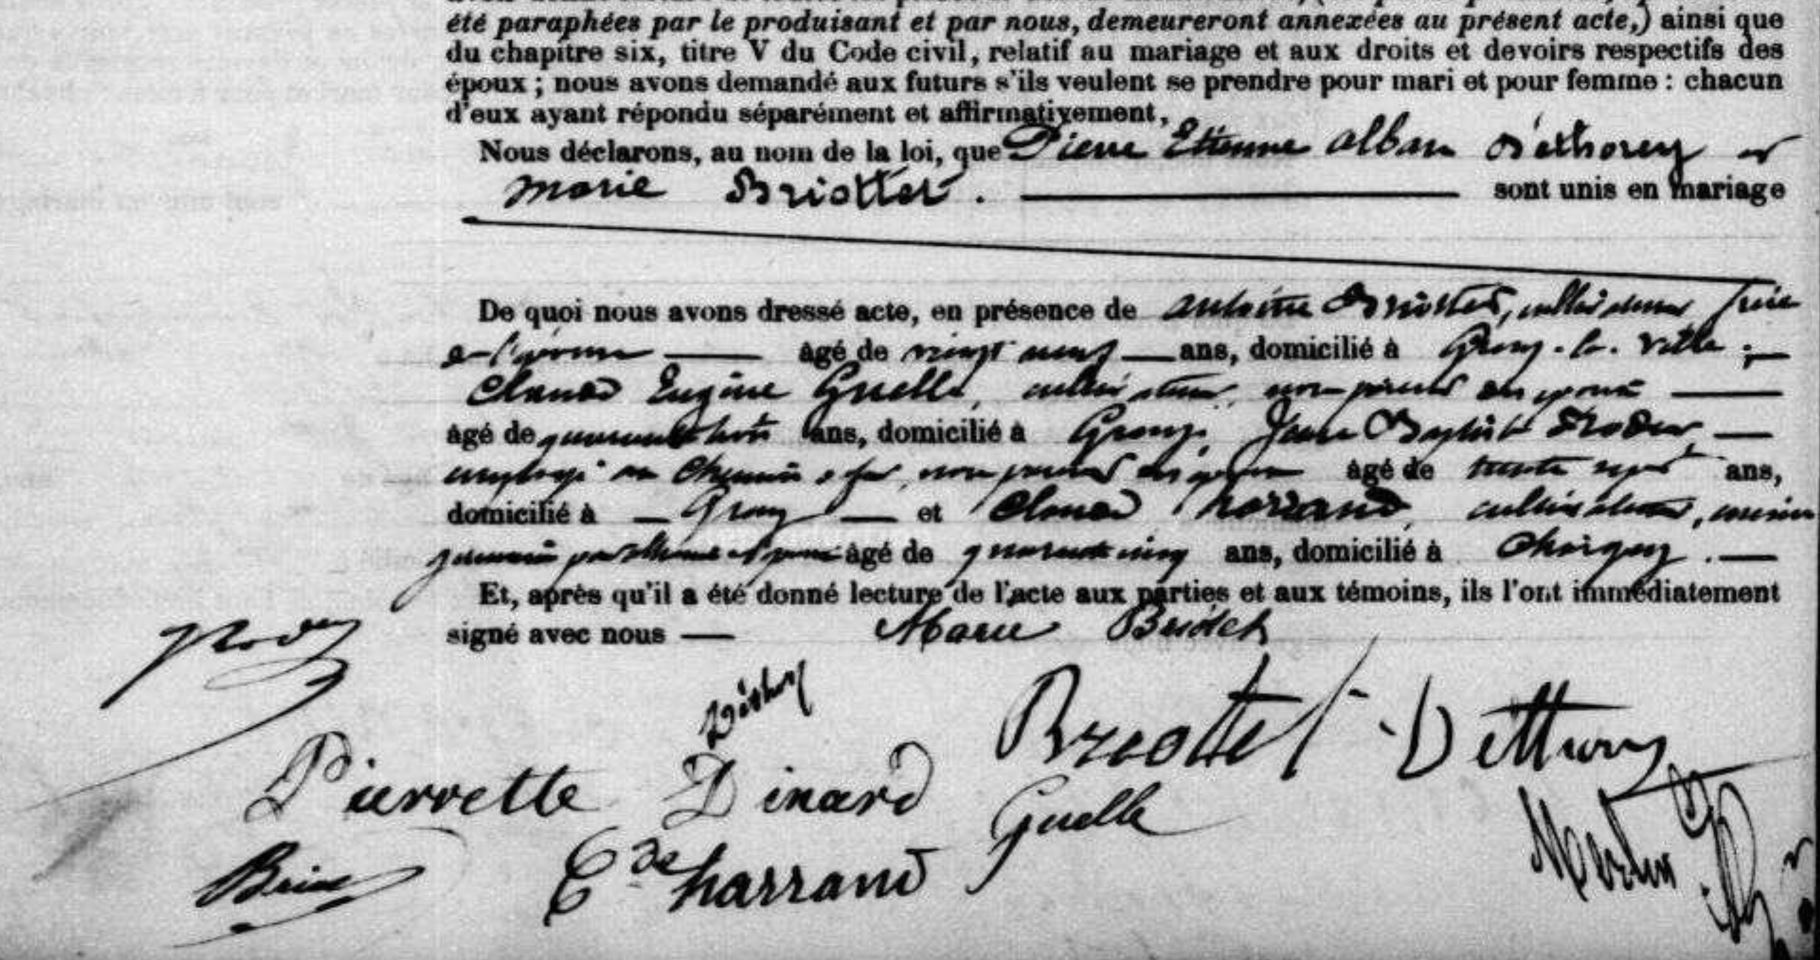 été paraphées par le produisant et par nous, demeureront annexées au présent acte,) ainsi que
du chapitre six, titre V du Code civil, relatif au mariage et aux droits et devoirs respectifs des
époux ; nous avons demandé aux futurs s'ils veulent se prendre pour mari et pour femme : chacun
d'eux ayant répondu séparément et affirmativement,
Nous déclarons, au nom de la loi, que Pierre Etienne alban Déthorey et
marie Briottet. sont unis en mariage
De quoi nous avons dressé acte, en présence de antoine Briottet, cultivateur frère
de l'épouse âgé de vingt neuf ans, domicilié à Gray-la-Ville ;
Claude Eugène Guelle, cultivateur, non parent des époux
âgé de quarante huit ans, domicilié à Gray, Jean Baptiste
employé au chemin de fer, non parent des époux âgé de trente sept ans,
domicilié à Gray et Claude cultivateur, cousin
germain par âgé de quarante cinq ans, domicilié à Choigney.
Et, après qu'il a été donné lecture de l'acte aux parties et aux témoins, ils l'ont immédiatement
signé avec nous Marie Briotet
Déthorey
Briottet Déthorey
Pierrette Dinard
Guelle